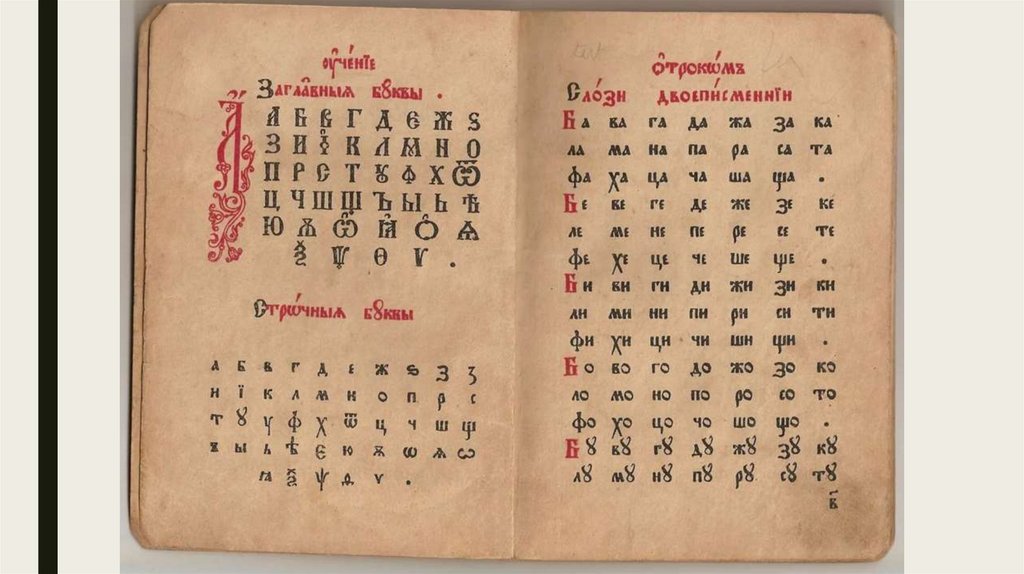 ᲂу҆че́нїе
Загла̑вныѧ бꙋквы .
А
А Б В Г Д Є Ж Ѕ
З И Ї К Л М Н О
П Р С Т Ꙋ Ф Х Ѿ
Ц Ч Ш Щ Ъ Ы Ь Ѣ
Ю Ѫ Ѽ Ꙗ Ѻ Ѧ
Ѯ Ѱ Ѳ Ѵ .
Стрѡ́чныѧ бꙋквы
а б в г д е ж ѕ з ꙁ
и ї к л м н о п р с
т ꙋ у ф х ѿ ц ч ш щ
ъ ы ь ѣ є ю ѫ ѡ ѧ ѽ
ꙗ ѯ ѱ ѳ ѵ .
ѻ҆трокѡ́мъ
Сло́зи двоепи́сменнїи
Ба ва га да жа за ка
ла ма на па ра са та
фа ха ца ча ша ща .
Бе ве ге де же зе ке
ле ме не пе ре се те
фе хе це че ше ще .
Би ви ги ди жи зи ки
ли ми ни пи ри си ти
фи хи ци чи ши щи .
Бо во го до жо зо ко
ло мо но по ро со то
фо хо цо чо шо що .
Бꙋ вꙋ гꙋ дꙋ жꙋ зꙋ кꙋ
лꙋ мꙋ нꙋ пꙋ рꙋ сꙋ тꙋ
в҃